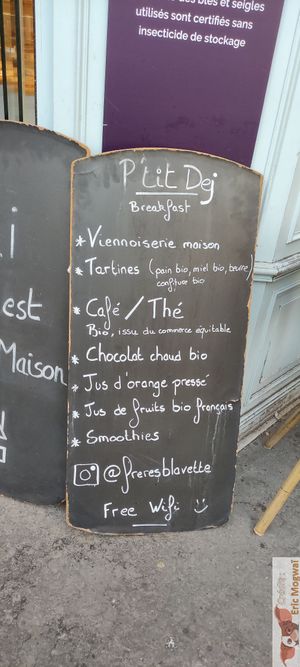 des blés et seigles
utilisés sont certifiés sans
insecticide de stockage
P'tit Dej
Breakfast
* Viennoiserie maison
* Tartines (pain bio, miel bio, beurre,
confiture bio)
* Café / Thé
Bio, issu du commerce équitable
* Chocolat chaud bio
* Jus d'orange pressé
* Jus de fruits bio français
* Smoothies
@freresblavette
Free Wifi
i
est
Maison
Eric Mogwai